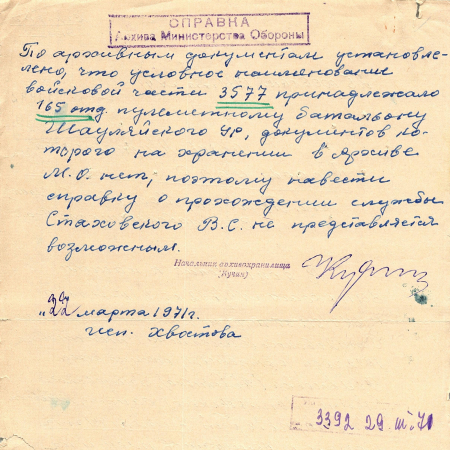 СПРАВКА
Архива Министерства Обороны
По архивным документам установле-
лено, что условное наименование
войсковой части 3577 принадлежало
165 отд. пулеметному батальону
Шауляйского УР, документов ко-
торого на хранении в Архиве
М.О. нет, поэтому навести
справку о прохождении службы
Стаховского В.С. не представляется
возможным.
Начальник архивохранилища
(Кучин)
"22" марта 1971г.
исп. Хвостова
3392 29 III 71